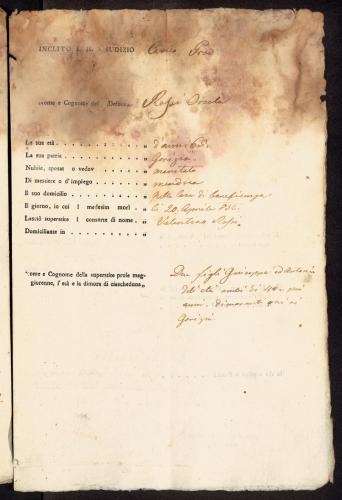 INCLITO I. R. GIUDIZIO Civico Prov
Nome e Cognome del Defunto Rossi Orsola
La sua età. . . . . . . . . „ d'anni 62.
La sua patria . . . . . . . . „ Gorizia
Nubile, sposat o vedov . . . . . „ maritata
Di mestiere o d'impiego . . . . . „
Il suo domicilio . . . . . . . „ nella Casa di beneficenza
Il giorno, in cui l medesim morì . . „ li 20 Aprile
Lasciò superstite l consorte di nome. „ Valentino Rossi.
Domiciliante in . . . . . . . „
Nome e Cognome della superstite prole maggiorenne, l' età e la dimora di ciascheduna „
Due figli Giuseppe ed Antonio
dell' età ambi di
anni. dimoranti qui a
Gorizia